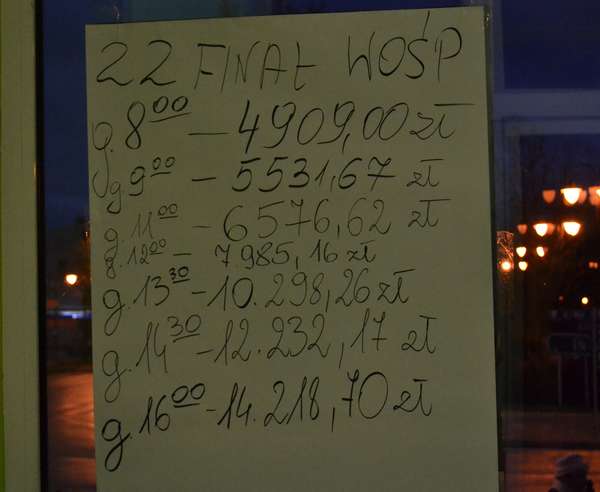 22 FINAŁ WOŚP
g.8⁰⁰ – 4909,00 zł
g.9⁰⁰ – 5531,67 zł
g.11⁰⁰ – 6576,62 zł
g.12⁰⁰ – 7.985,16 zł
g.13³⁰ – 10.298,26 zł
g.14³⁰ – 12.232,17 zł
g.16⁰⁰ – 14.218,70 zł